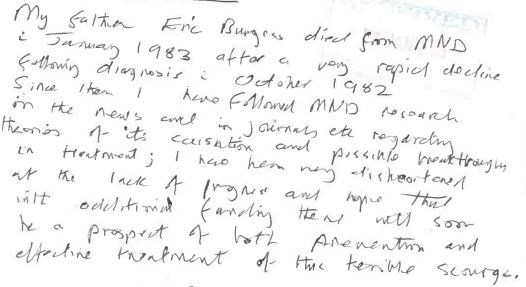 My father Eric Burgess died from MND
i January 1983 after a very rapid decline
following diagnosis i October 1982
Since then I have followed MND research
in the news and in journals etc regarding
theories of its causation and possible breakthroughs
in treatment; I have been very disheartened
at the lack of progress and hope that
with additional funding there will soon
be a prospect of both prevention and
effective treatment of this terrible scourge.